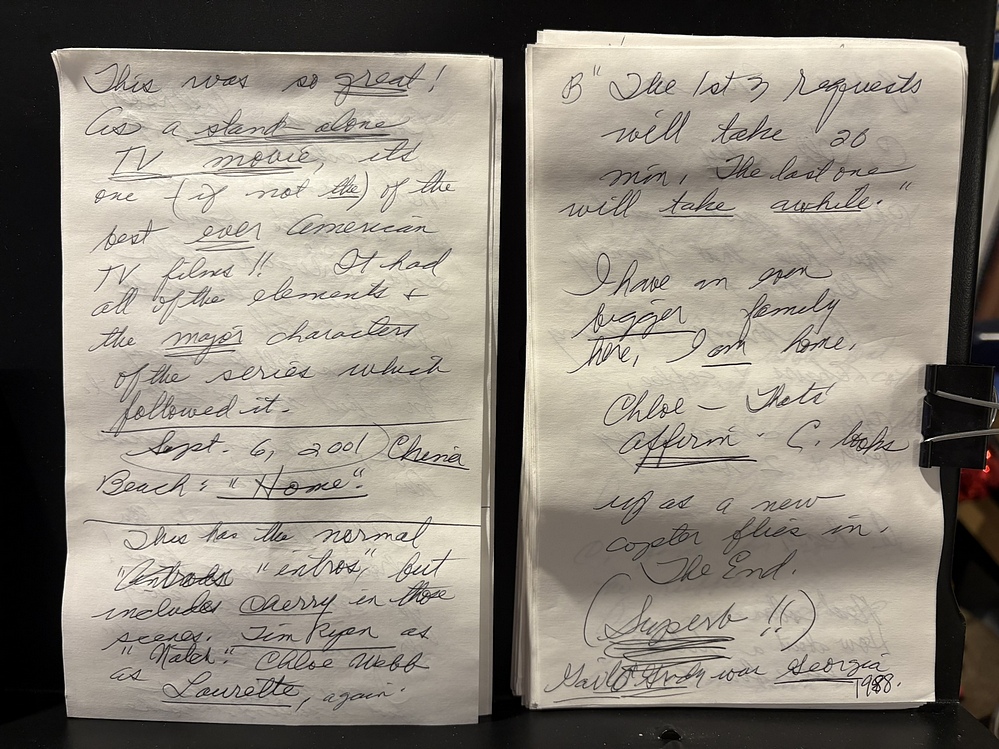 This was so great!
As a stand-alone
TV movie, its
one (if not the) of the
best ever American
TV films!! It had
all of the elements &
the major characters
of the series which
followed it.
Sept. 6, 2001 China
Beach: "Home".
This has the normal
"intros", but
includes Cherry in those
scenes. Tim Ryan as
"Natch." Chloe Webb
as Laurette, again.
B "The 1st 3 requests
will take 20
min. The last one
will take awhile."
I have an even
bigger family
here, I am home.
Chloe - Thats
affirm. C. looks
up as a new
copter flies in.
The End.
(Superb!!)
was Georgia
1988.